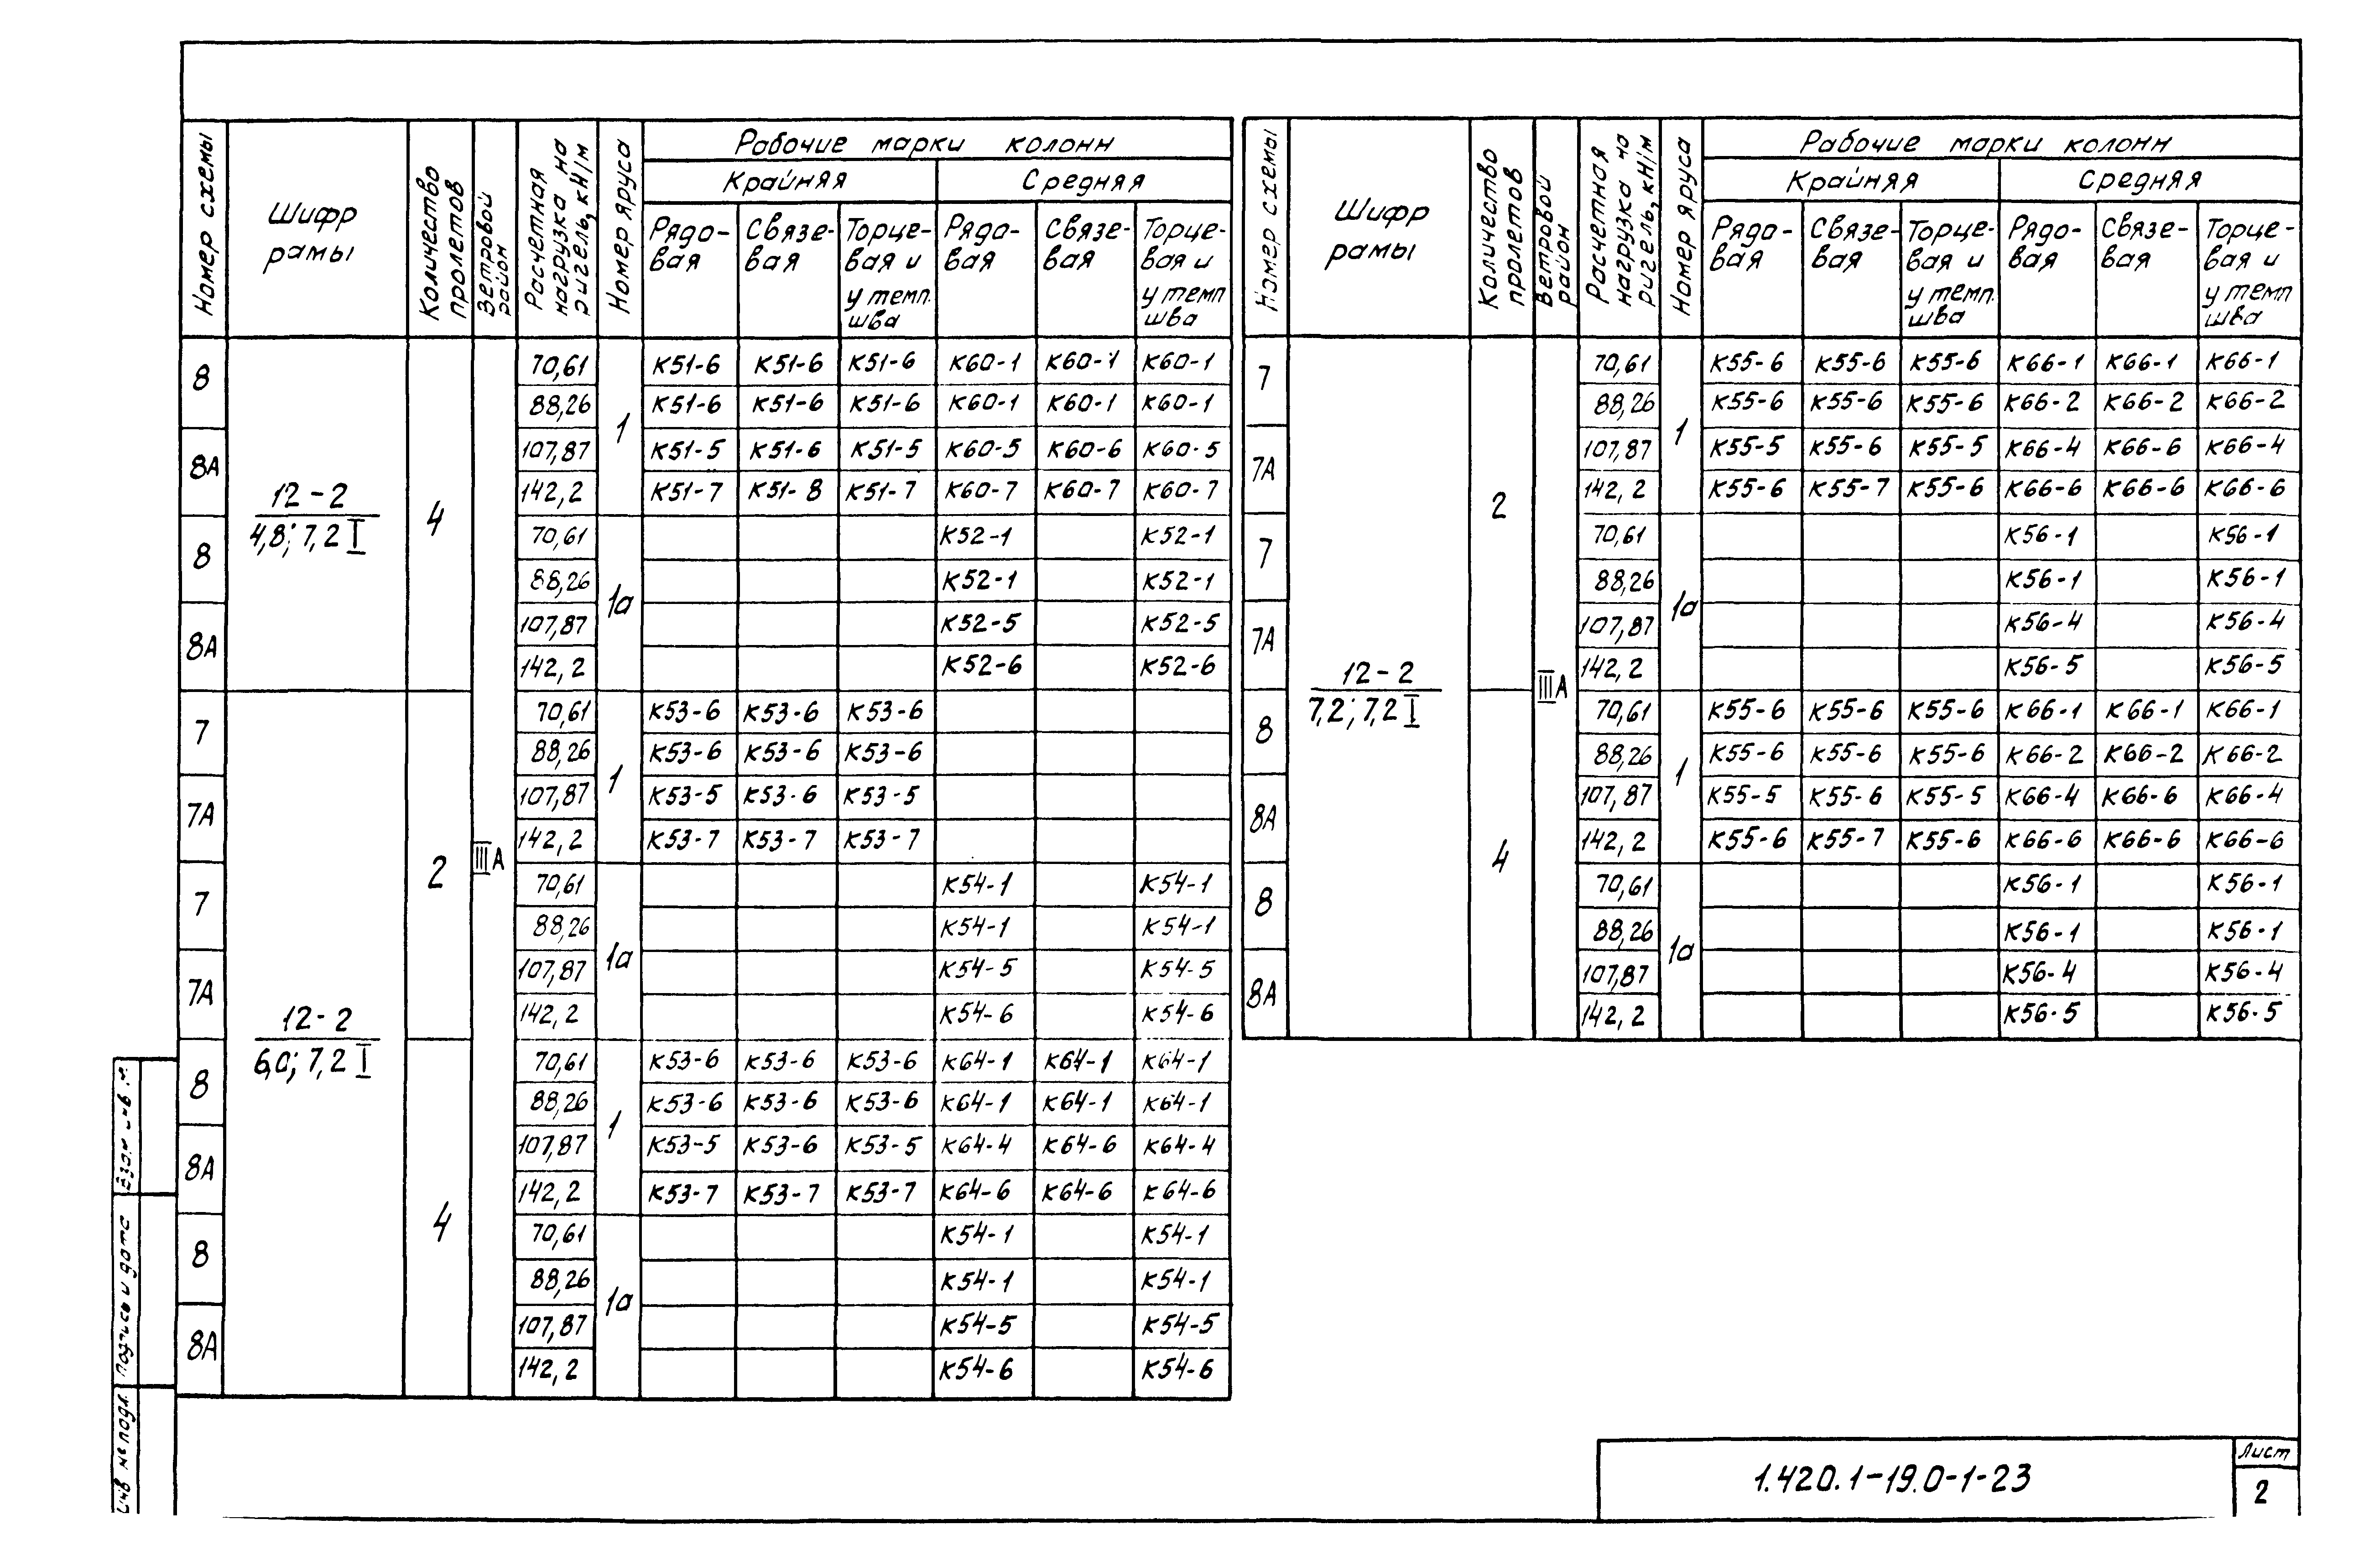 Номер схемы | Шифр рамы | Количество пролетов | Ветровой район | Расчетная нагрузка на ригель, кН/м | Номер яруса | Рабочие марки колонн
Крайняя | Средняя
Рядовая | Связевая | Торцевая и у темп. шва | Рядовая | Связевая | Торцевая и у темп шва
12-2
4,8; 7,2 I
4
III А
8 | 70,61 | 1 | К51-6 | К51-6 | К51-6 | К60-1 | К60-1 | К60-1
88,26 | К51-6 | К51-6 | К51-6 | К60-1 | К60-1 | К60-1
8А | 107,87 | К51-5 | К51-6 | К51-5 | К60-5 | К60-6 | К60-5
142,2 | К51-7 | К51-8 | К51-7 | К60-7 | К60-7 | К60-7
8 | 70,61 | 1а | К52-1 | К52-1
88,26 | К52-1 | К52-1
8А | 107,87 | К52-5 | К52-5
142,2 | К52-6 | К52-6
12-2
6,0; 7,2 I
2
7 | 70,61 | 1 | К53-6 | К53-6 | К53-6
88,26 | К53-6 | К53-6 | К53-6
7А | 107,87 | К53-5 | К53-6 | К53-5
142,2 | К53-7 | К53-7 | К53-7
7 | 70,61 | 1а | К54-1 | К54-1
88,26 | К54-1 | К54-1
7А | 107,87 | К54-5 | К54-5
142,2 | К54-6 | К54-6
4
8 | 70,61 | 1 | К53-6 | К53-6 | К53-6 | К64-1 | К64-1 | К64-1
88,26 | К53-6 | К53-6 | К53-6 | К64-1 | К64-1 | К64-1
8А | 107,87 | К53-5 | К53-6 | К53-5 | К64-4 | К64-6 | К64-4
142,2 | К53-7 | К53-7 | К53-7 | К64-6 | К64-6 | К64-6
8 | 70,61 | 1а | К54-1 | К54-1
88,26 | К54-1 | К54-1
8А | 107,87 | К54-5 | К54-5
142,2 | К54-6 | К54-6
Номер схемы | Шифр рамы | Количество пролетов | Ветровой район | Расчетная нагрузка на ригель, кН/м | Номер яруса | Рабочие марки колонн
Крайняя | Средняя
Рядовая | Связевая | Торцевая и у темп. шва | Рядовая | Связевая | Торцевая и у темп шва
12-2
7,2; 7,2 I
2
III А
7 | 70,61 | 1 | К55-6 | К55-6 | К55-6 | К66-1 | К66-1 | К66-1
88,26 | К55-6 | К55-6 | К55-6 | К66-2 | К66-2 | К66-2
7А | 107,87 | К55-5 | К55-6 | К55-5 | К66-4 | К66-6 | К66-4
142,2 | К55-6 | К55-7 | К55-6 | К66-6 | К66-6 | К66-6
7 | 70,61 | 1а | К56-1 | К56-1
88,26 | К56-1 | К56-1
7А | 107,87 | К56-4 | К56-4
142,2 | К56-5 | К56-5
4
8 | 70,61 | 1 | К55-6 | К55-6 | К55-6 | К66-1 | К66-1 | К66-1
88,26 | К55-6 | К55-6 | К55-6 | К66-2 | К66-2 | К66-2
8А | 107,87 | К55-5 | К55-6 | К55-5 | К66-4 | К66-6 | К66-4
142,2 | К55-6 | К55-7 | К55-6 | К66-6 | К66-6 | К66-6
8 | 70,61 | 1а | К56-1 | К56-1
88,26 | К56-1 | К56-1
8А | 107,87 | К56-4 | К56-4
142,2 | К56-5 | К56-5
Подпись и дата
Инв № подл.
1.420.1-19.0-1-23
Лист
2